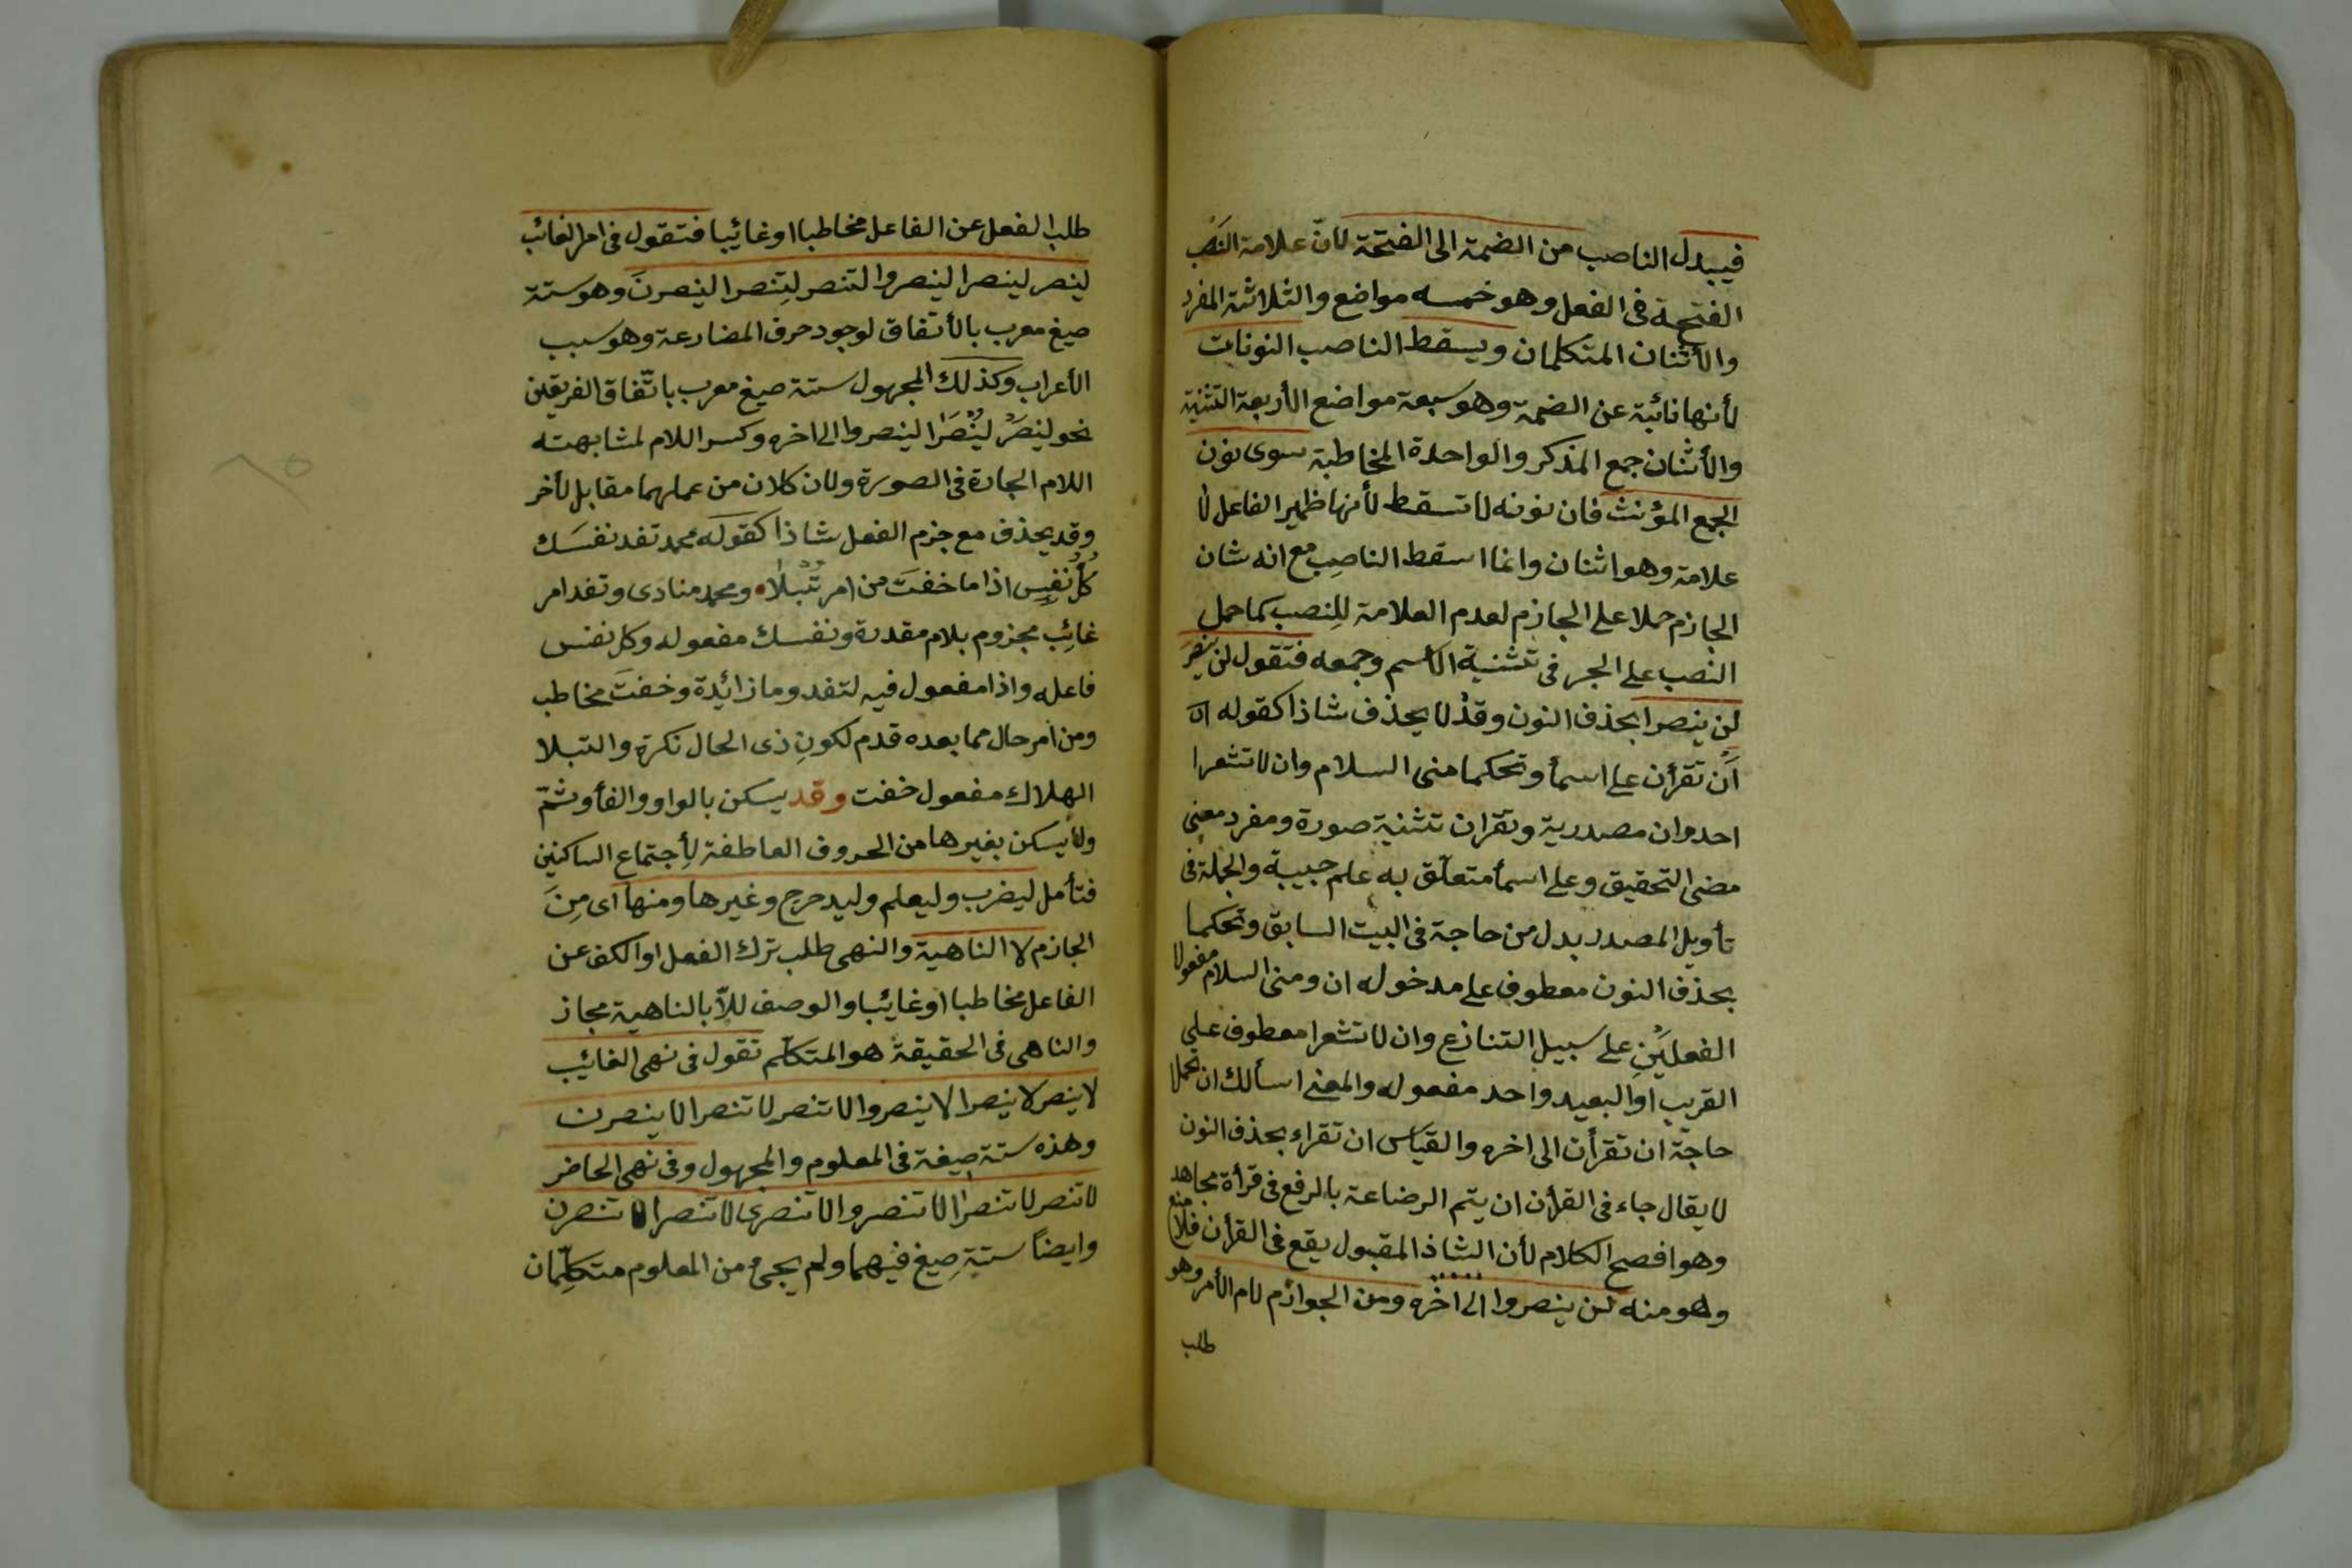 فيبدل الناصب من الضمة الى الفتحة لان علامة النصب
الفتحة فى الفعل وهو خمسه مواضع والثلاثة المفرد
والأثنان المتكلمان ويسقط الناصب النونات
لأنها نائبة عن الضمة وهو سبعة مواضع الأربعة التثنية
والأثنان جمع المذكر والواحدة المخاطبة سوى نون
الجمع المؤنث فان نونه لا تسقط لأنها ضمير الفاعل لا
علامة وهو اثنان وانما اسقط الناصب مع انه شان
الجازم حملا على الجازم لعدم العلامة للنصب كما حمل
النصب على الجر فى تثنية الأسم وجمعه فتقول لن ينصر
لن ينصرا بحذف النون وقد لا يحذف شاذا كقوله
أن تقرأن على اسمأ وتحكما منى السلام وان لا تشعرا
احدا وان مصدرية وتقران تثنية صورة ومفرد معنى
مضى التحقيق وعلى اسمأ متعلق به علم حبيبة والجملة فى
تأويل المصدر بدل من حاجة فى البيت السابق وتحكما
بحذف النون معطوف على مدخوله ان ومنى السلام مفعولا
الفعلين على سبيل التنازع وان لا تشعرا معطوف على
القريب او البعيد واحد مفعوله والمعنى اسألك ان تحملا
حاجة ان تقرأن الى اخره والقياس ان تقراء بحذف النون
لا يقال جاء فى القرأن ان يتم الرضاعة بالرفع فى قرأة مجاهد
وهو افصح الكلام لأن الشاذ المقبول يقع فى القرأن فلا منع
وهو منه لن ينصروا الى اخره ومن الجوازم لام الأمر وهو
طلب
طلب الفعل عن الفاعل مخاطبا او غائبا فتقول فى امر الغائب
لينصر لينصرا لينصروا لتنصر لتنصرا لينصرن وهو ستة
صيغ معرب بالأتفاق لوجود حرف المضارعة وهو سبب
الأعراب وكذلك المجهول ستة صيغ معرب باتفاق الفريقين
نحو لينصر لينصرا لينصروا الى اخره وكسر اللام لمشابهته
اللام الجارة فى الصورة ولان كلان من عملهما مقابل لأخر
وقد يحذف مع جزم الفعل شاذا كقوله محمد تفد نفسك
كل نفس اذا ما خفت من امر تبلا ومحمد منادى وتفد امر
غائب مجزوم بلام مقدرة ونفسك مفعوله وكل نفس
فاعله واذا مفعول فيه لتفد وما زائدة وخفت مخاطب
ومن امر حال مما بعده قدم لكون ذى الحال نكرة والتبلا
الهلاك مفعول خفت وقد يسكن بالواو والفأ وثم
ولا يسكن بغيرها من الحروف العاطفة لأجتماع الساكنين
فتأمل ليضرب وليعلم وليدحرج وغيرها ومنها اى من
الجازم لا الناهية والنهى طلب ترك الفعل او الكف عن
الفاعل مخاطبا او غائبا والوصف للا بالناهية مجاز
والناهى فى الحقيقة هو المتكلم تقول فى نهى الغائب
لا ينصر لا ينصرا لا ينصروا لا تنصر لا تنصرا لا ينصرن
وهذه ستة صيغة فى المعلوم والمجهول وفى نهى الحاضر
لا تنصر لا تنصرا لا تنصروا لا تنصرى لا تنصرا لا تنصرن
وايضا ستة صيغ فيهما ولم يجئ من المعلوم متكلمان